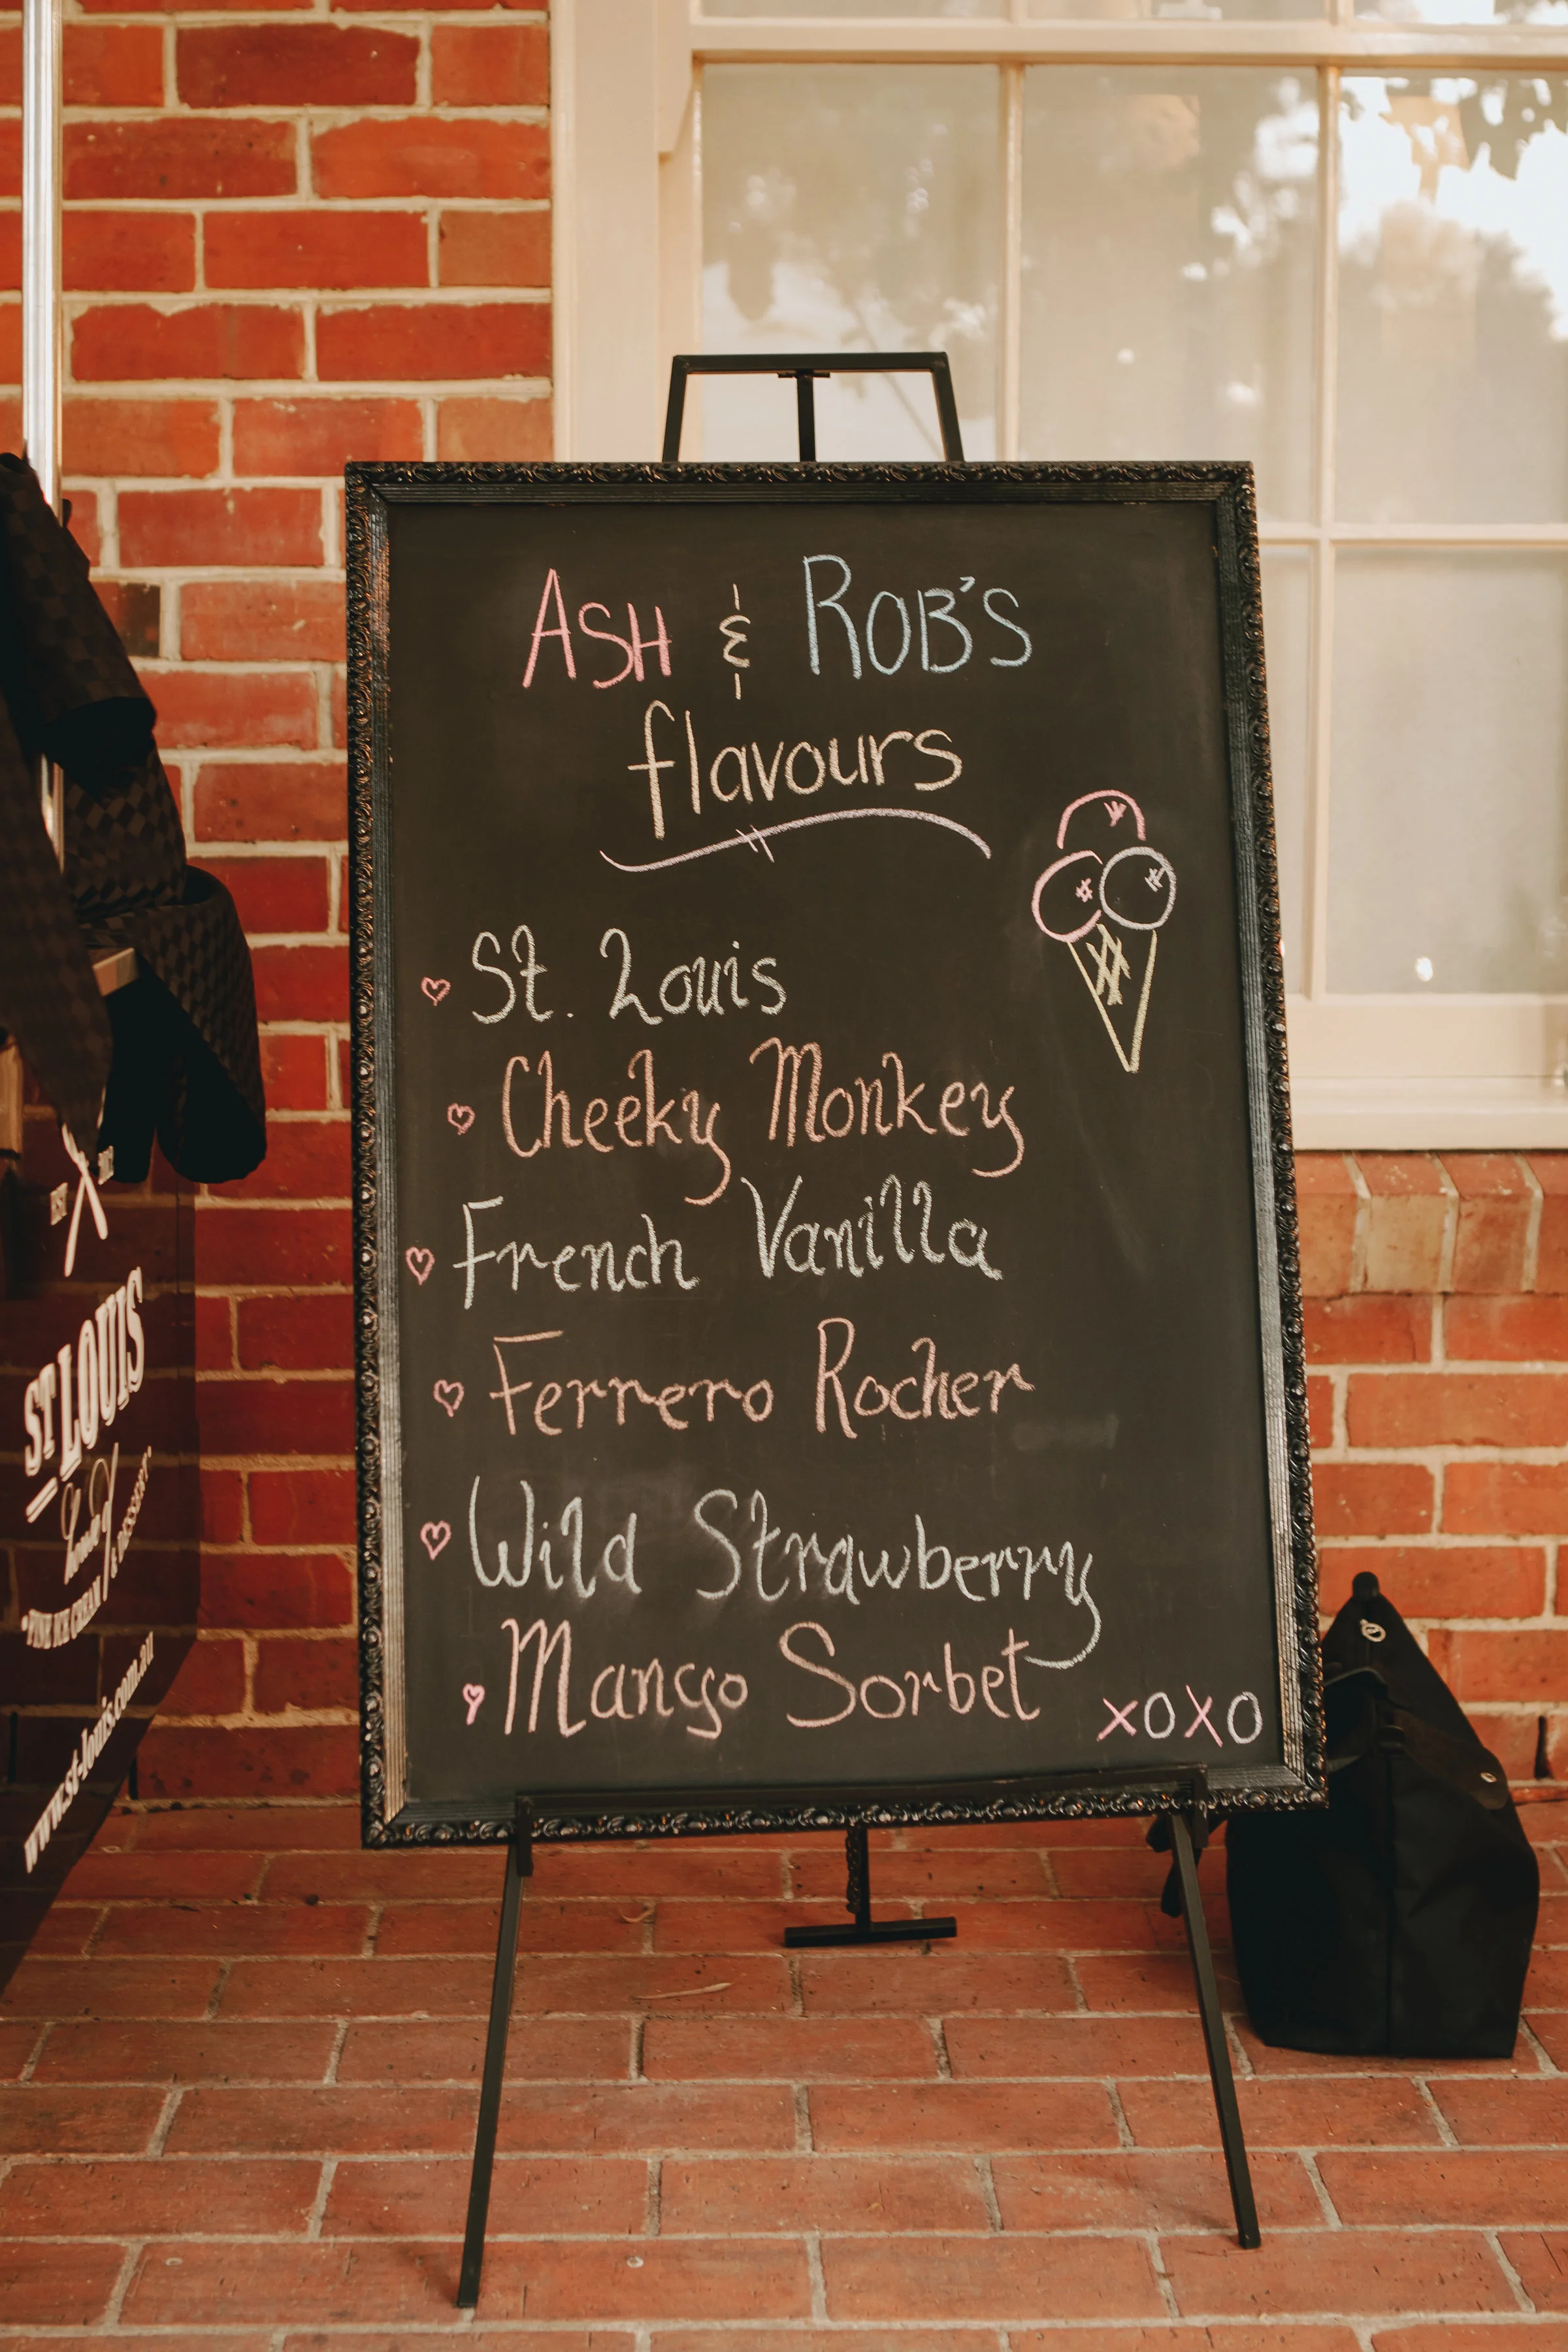 ASH & ROB'S
flavours
St. Louis
Cheeky Monkey
French Vanilla
Ferrero Rocher
Wild Strawberry
Mango Sorbet
XOXO
EST
ST LOUIS
& DESSERT
FINE ICE CREAM
www.st-louis.com.au